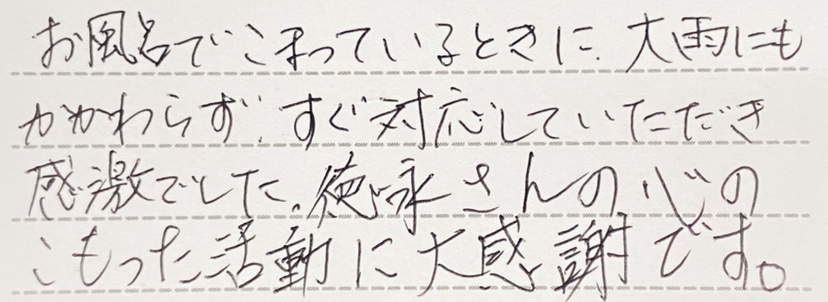 お風呂でこまっているときに、大雨にも
かかわらず、すぐ対応していただき
感激でした。徳永さんの心の
こもった活動に大感謝です。